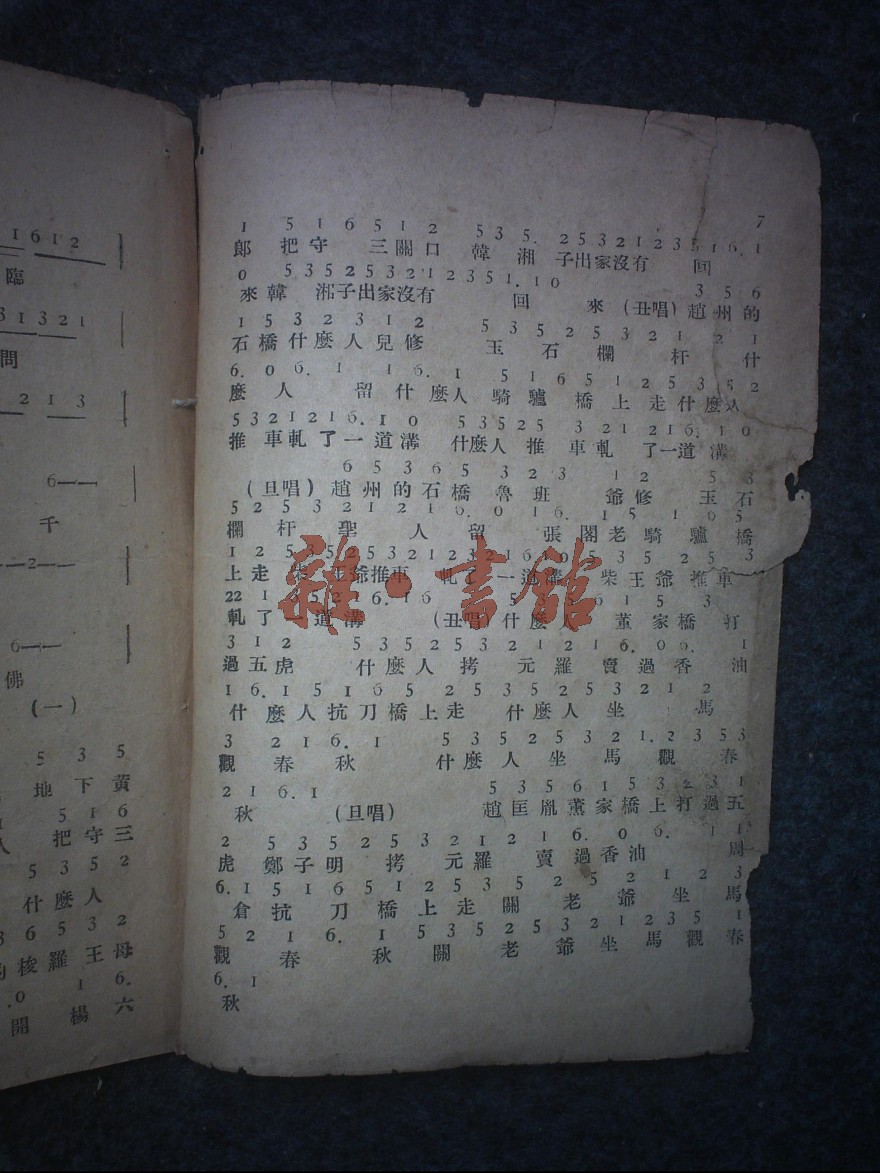 7
1 5 1 6 5 1 2 5 3 5. 2 5 3 2 1 2 3 5 1 6. 1
郎 把守 三關口 韓 湘 子出家沒有 回
0 5 3 5 2 5 3 2 1 2 3 5 1. 1 0 3 5 6
來韓 湘子出家沒有 回 來 (丑唱) 趙州的
1 5 3 2 3 1 2 5 3 5 2 5 3 2 1 2 1
石橋什麼人兒修 玉石欄杆 什
6. 0 6. 1 1 6. 1 5 1 6 5 1 2 5 3 5 2
麼人 留什麼人騎驢橋上走什麼人
5 3 2 1 2 1 6. 1 0 5 3 5 2 5 3 2 1 2 1 6. 1 0
推車軋了一道溝 什麼人推車軋 了一道溝
6 5 3 6 5 3 2 3 1 2 5 3
(旦唱) 趙州的石橋魯班 爺修 玉石
5 2 5 3 2 1 2 1 6. 0 1 6. 1 5 1 6 5
欄杆聖 人 留 張閣老騎驢橋
1 2 5 3 5 2 5 3 2 1 2 3 2 1 6 1 0 5 3 5 2 5 3
上走柴王爺推車 軋了一道溝 柴王爺推車
軋了一道溝 (丑唱) 什麼人 董家橋打
3 1 2 5 3 5 2 5 3 2 1 2 1 6. 0 6. 1
過五虎 什麼人拷 元羅賣過香油
1 6. 1 5 1 6 5 2 5 3 5 2 5 3 2 1 2
什麼人抗刀橋上走 什麼人坐 馬
3 2 1 6. 1 5 3 5 2 5 3 2 1. 2 3 5 3
觀春秋 什麼人坐馬觀春
2 1 6. 1 5 3 5 6 1 5 3 2 3 1
秋 (旦唱) 趙匡胤董家橋上打過五
2 5 3 5 2 5 3 2 1 2 1 6. 0 6. 1 1
虎 鄭子明拷 元羅賣過香油 周
6. 1 5 1 6 5 1 2 5 3 5 2 5 2 1 2 3
倉抗刀橋上走關老爺坐馬
5 2 1 6. 1 5 3 5 2 5 3 2 1 2 3 5 1
觀春秋 關老爺坐馬觀春
6. 1
秋
1 6 1 2
臨
3 1 3 2 1
問
2 1 3
6——
千
—2——
6——
佛
(一)
5 3 5
地下黃
5 1 6
把守三
5 3 5 2
什麼人
3 6 5 3 2
的梭羅王母
.0 1 6.
開楊六
雜·書館